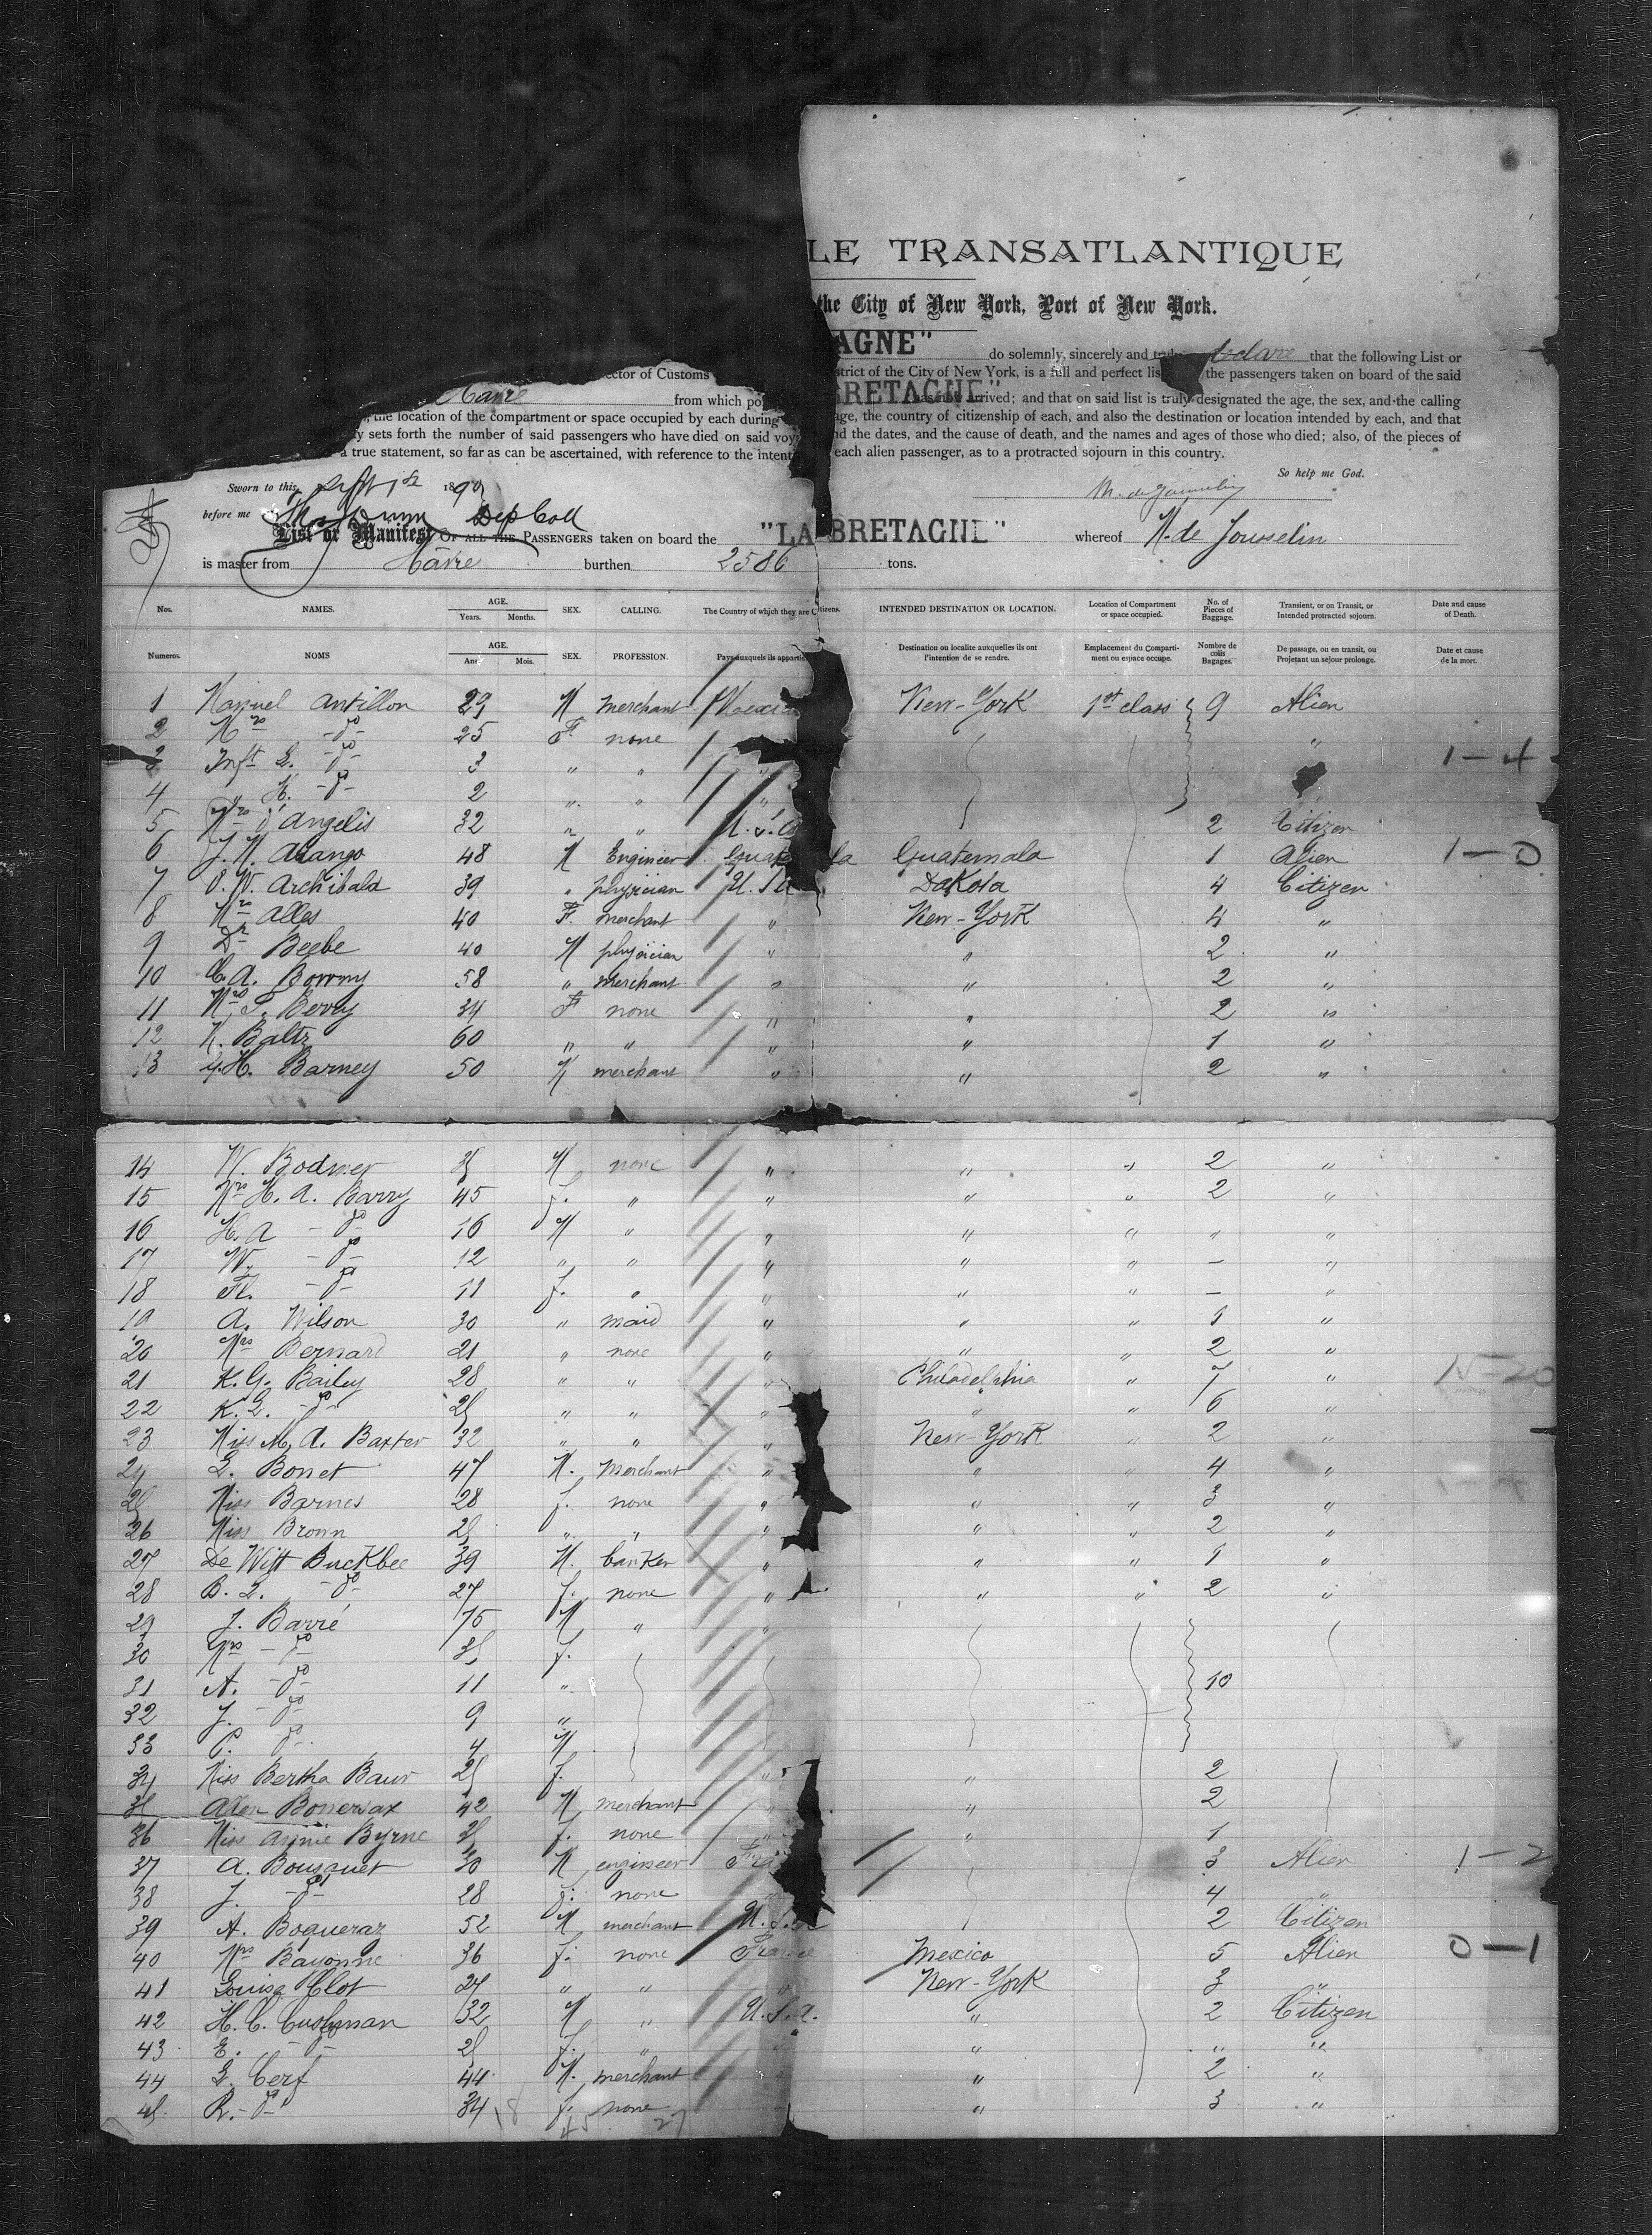 LE TRANSATLANTIQUE
the City of New York, Port of New York.
AGNE" do solemnly, sincerely and declare that the following List or
ector of Customs strict of the City of New York, is a full and perfect the passengers taken on board of the said
Havre from which BRETAGNE" arrived; and that on said list is truly designated the age, the sex, and the calling
the location of the compartment or space occupied by each during age, the country of citizenship of each, and also the destination or location intended by each, and that
sets forth the number of said passengers who have died on said nd the dates, and the cause of death, and the names and ages of those who died; also, of the pieces of
a true statement, so far as can be ascertained, with reference to the each alien passenger, as to a protracted sojourn in this country.
So help me God.
Sworn to this Sept 1st 189
before me Dep Coll
List or Manifest OF ALL THE PASSENGERS taken on board the "LA BRETAGNE" whereof M. de Jousselin
is master from Havre burthen 2586 tons.
Nos. NAMES. AGE. Years. Months. SEX. CALLING. The Country of which they are Citizens. INTENDED DESTINATION OR LOCATION. Location of Compartment or space occupied. No. of Pieces of Baggage. Transient, or on Transit, or Intended protracted sojourn. Date and cause of Death.
Numeros. NOMS AGE. Ans. Mois. SEX. PROFESSION. Pays auxquels ils Destination ou localite auxquelles ils ont l'intention de se rendre. Emplacement du Compartiment ou espace occupe. Nombre de colis Bagages. De passage, ou en transit, ou Projetant un sejour prolonge. Date et cause de la mort.
1 Manuel Antillon 29 M merchant New-York 1st class 9 Alien
2 Mrs -do- 25 F. none "
3 Inft E. -do- 3 " " 1-4
4 " -do- 2 " " "
5 Mrs d'Angelis 32 " " U.S.a 2 Citizen
6 J. M. 48 M Engineer Guatemala Guatemala 1 Alien 1-0
7 Archibald 39 " physician U.S.a Dakota 4 Citizen
8 Mrs Alles 40 F. merchant " New-York 4 "
9 Dr Beebe 40 M physician " " 2 "
10 C. A. 58 " merchant " " 2 "
11 Mrs Berry 34 F none " " 2 "
12 M. Baltz 60 " " " " 1 "
13 H. Barney 50 M merchant " " 2 "
14 W. Bodmer 35 M none " " " 2 "
15 Mrs H. A. Barry 45 f. " " " " 2 "
16 H. A -do- 16 M " " " " " "
17 W. -do- 12 " " " " " - "
18 Fl. -do- 11 f. " " " " - "
19 A. Wilson 30 " maid " " " 1 "
20 Mrs Bernard 21 " none " " " 2 "
21 K. G. Bailey 28 " " " Philadelphia " 7 "
22 K. L. -do- 25 " " " " " 6 "
23 Miss M. A. Baxter 32 " " " New-York " 2 "
24 L. Bonet 47 M. Merchant " " " 4 "
25 Miss Barnes 28 f. none " " " 3 "
26 Miss Brown 25 " " " " " 2 "
27 De Witt Buckbee 39 M. banker " " " 1 "
28 B. L. -do- 27 f. none " " " 2 "
29 J. Barré 75 M " "
30 Mrs -do- 35 f.
31 A. -do- 11 " 10
32 J. -do- 9 "
33 P. -do- 4 M
34 Miss Bertha Baur 25 f. " " 2
35 Allen 42 M merchant " 2
36 Miss Annie Byrne 35 f. none " " 1
37 A. Bousquet 30 M engineer Fra 3 Alien 1-2
38 J. -do- 28 f. none 4 "
39 A. Boqueraz 52 M merchant U.S.a 2 Citizen
40 Mrs Bayonne 36 f. none France Mexico 5 Alien 0-1
41 Louisa Clot 27 " " " New-York 3 "
42 H. C. Cushman 32 M " U.S.a. " 2 Citizen
43 E. -do- 25 f. " " " " "
44 L. Cerf 44 M. merchant " 2 "
45 R. -do- 34 f. none " 3 "
18 45 27